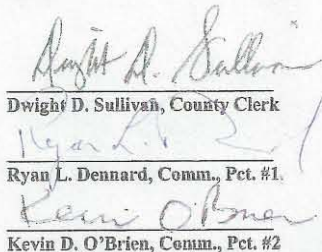 Dwight D. Sullivan
Dwight D. Sullivan, County Clerk
Ryan L. Dennard, Comm., Pct. #1
Kevin O'Brien
Kevin D. O'Brien, Comm., Pct. #2